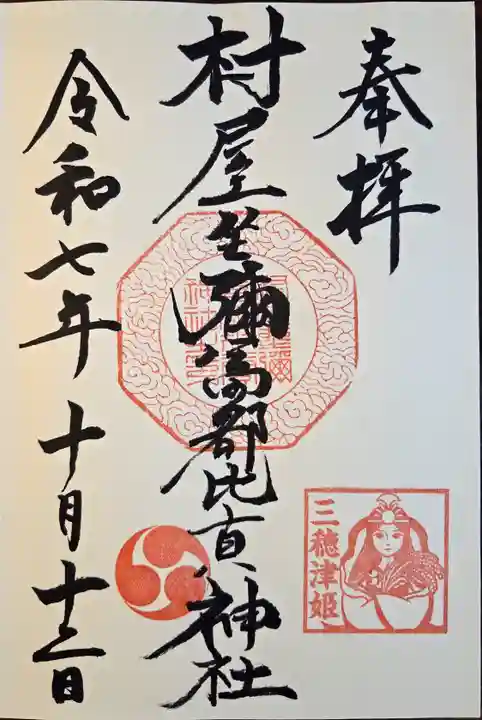 奉拝
村屋坐彌冨都比賣神社
三穂津姫
令和七年十月十三日